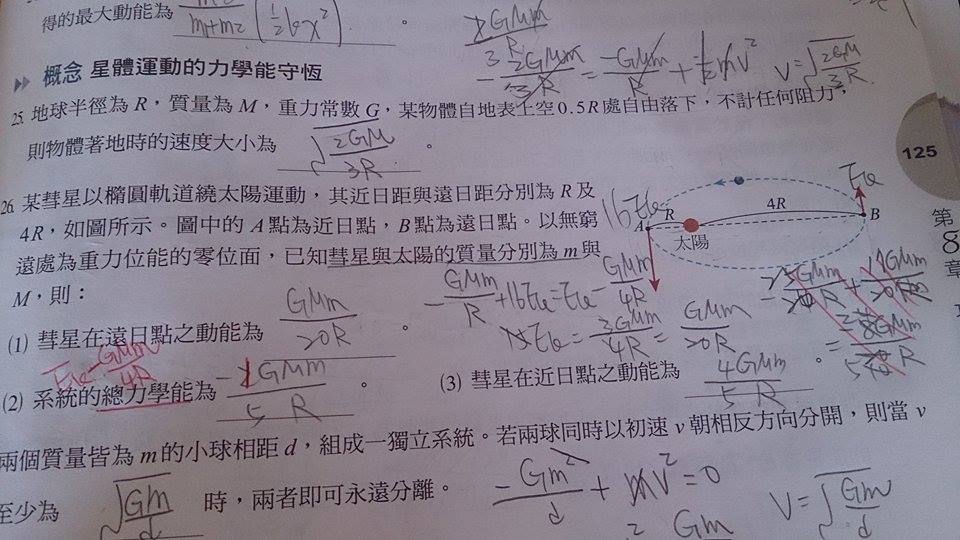 得的最大動能為 m₂/m+m₂ (1/2 kx²) 。
概念 星體運動的力學能守恆
-2GMm/3R = -GMm/R + 1/2 mv² v=√2GM/3R
25. 地球半徑為 R，質量為 M，重力常數 G，某物體自地表上空 0.5R 處自由落下，不計任何阻力，
則物體著地時的速度大小為 √2GM/3R 。
125
26. 某彗星以橢圓軌道繞太陽運動，其近日距與遠日距分別為 R 及
4R，如圖所示。圖中的 A 點為近日點，B 點為遠日點。以無窮
遠處為重力位能的零位面，已知彗星與太陽的質量分別為 m 與
M，則：
16Ek
Ek
A
R
太陽
4R
B
第
8
章
-GMm/R + 16Ek = Ek - GMm/4R
15Ek = 3GMm/4R = GMm/20R
(1) 彗星在遠日點之動能為 GMm/20R 。
Ek-GMm/4R
(2) 系統的總力學能為 -1GMm/5R 。
(3) 彗星在近日點之動能為 4GMm/5R 。
兩個質量皆為 m 的小球相距 d，組成一獨立系統。若兩球同時以初速 v 朝相反方向分開，則當 v
至少為 √Gm/d 時，兩者即可永遠分離。
-Gm²/d + mv² = 0
Gm
v=√Gm/d